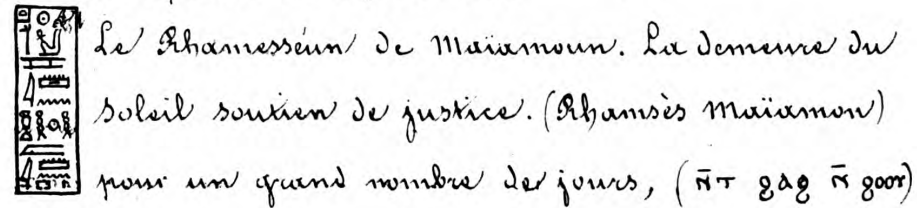 Le Rhamesséun de Maïamoun. La demeure du
Soleil soutien de justice. (Rhamsès Maïamon)
pour un grand nombre de jours, (ⲛ̄ⲧ ϩⲁϩ ⲛ̄ ϩⲟⲟⲩ)